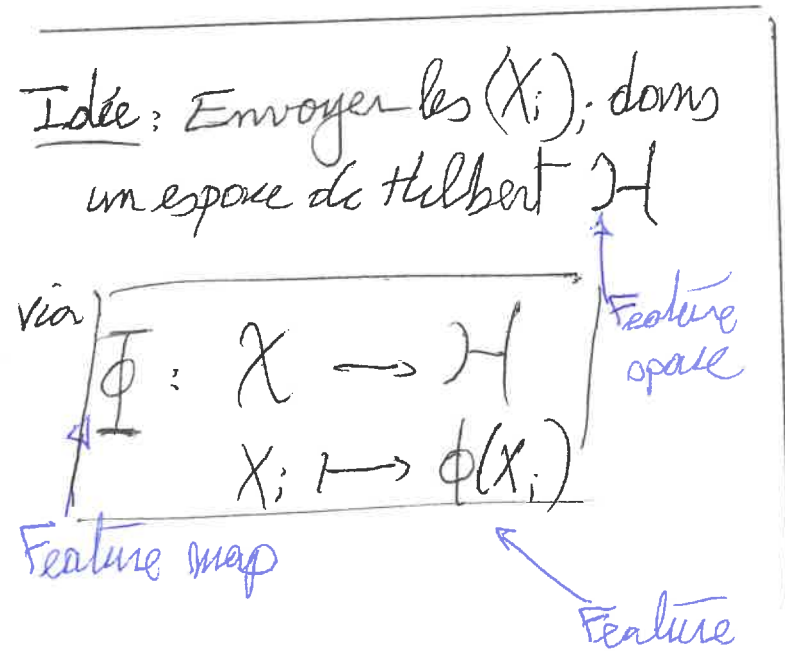 Idée : Envoyer les (Xᵢ)ᵢ dans
un espace de Hilbert ℋ
via
Φ : 𝒳 → ℋ
Xᵢ ↦ ϕ(Xᵢ)
Feature
space
Feature map
Feature